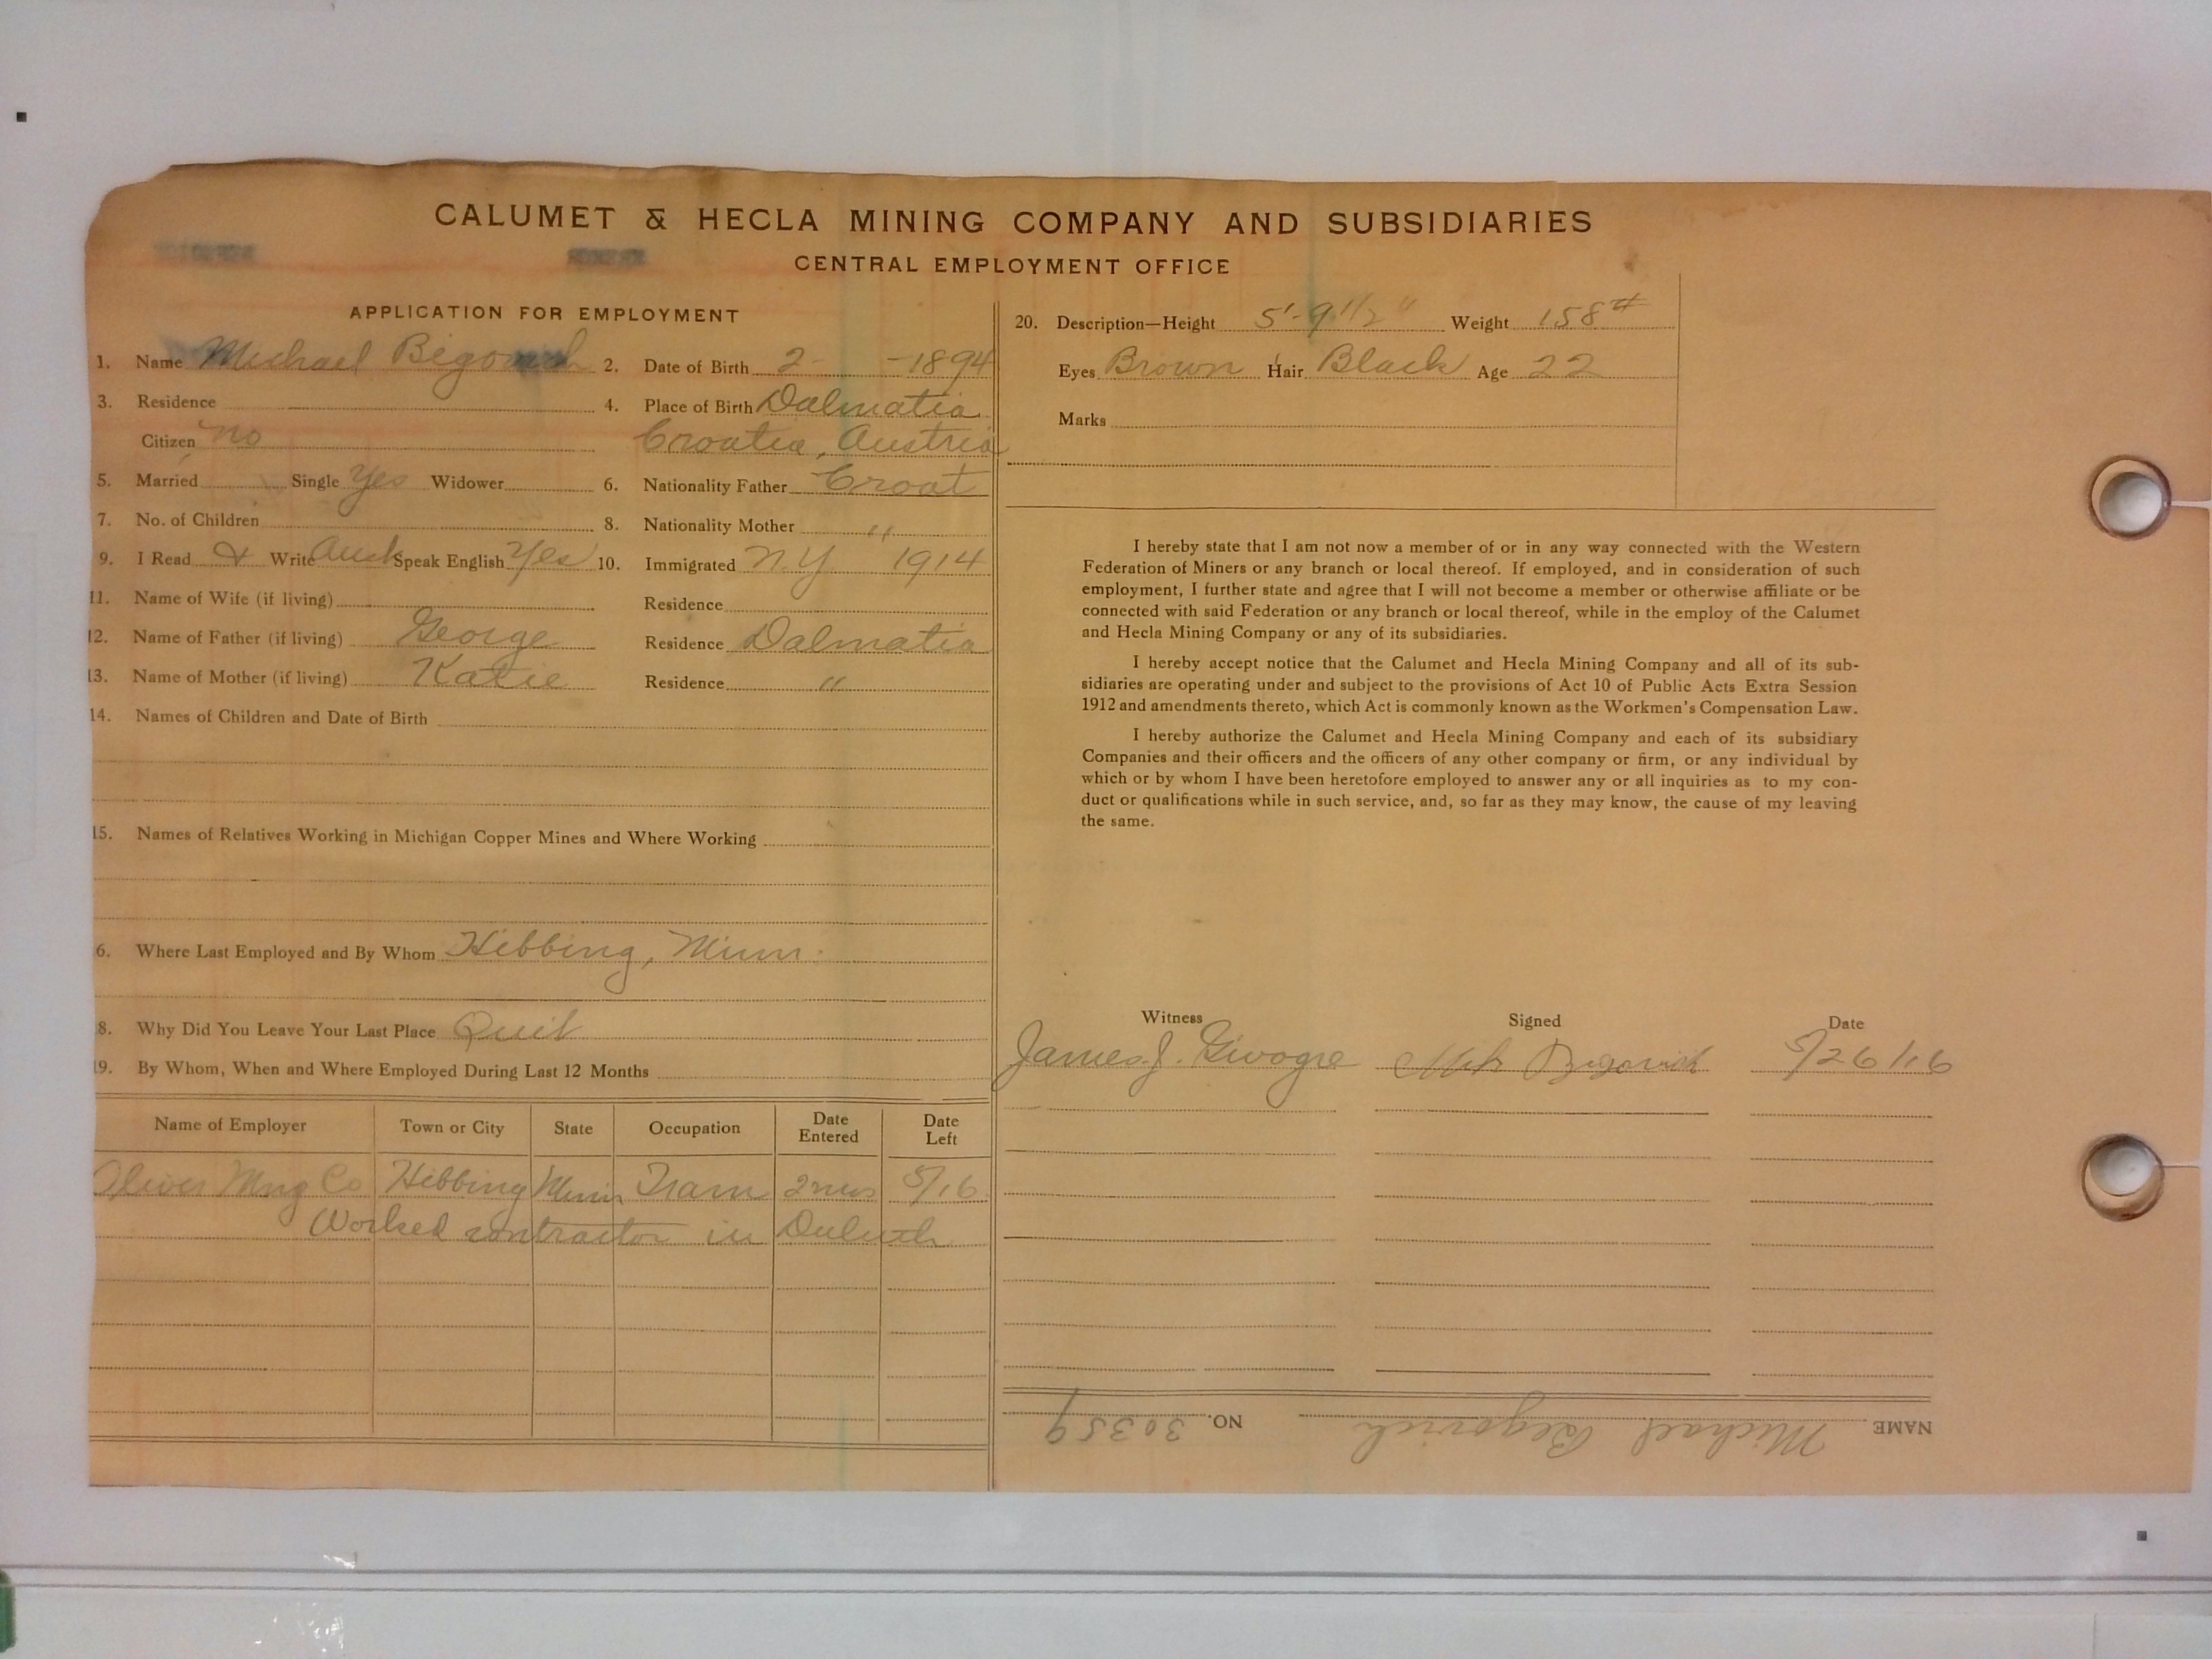 CALUMET & HECLA MINING COMPANY AND SUBSIDIARIES
CENTRAL EMPLOYMENT OFFICE
APPLICATION FOR EMPLOYMENT
1. Name Michael Begovich 2. Date of Birth 2 - 1894
3. Residence 4. Place of Birth Dalmatia
Citizen no Croatia, Austria
5. Married Single Yes Widower 6. Nationality Father Croat
7. No. of Children 8. Nationality Mother "
9. I Read & Write Aust Speak English Yes 10. Immigrated N.Y. 1914
11. Name of Wife (if living) Residence
12. Name of Father (if living) George Residence Dalmatia
13. Name of Mother (if living) Katie Residence "
14. Names of Children and Date of Birth
15. Names of Relatives Working in Michigan Copper Mines and Where Working
6. Where Last Employed and By Whom Hibbing, Minn.
8. Why Did You Leave Your Last Place Quit
19. By Whom, When and Where Employed During Last 12 Months
Name of Employer Town or City State Occupation Date Entered Date Left
Oliver Mng Co Hibbing Minn Tram 2 mos 5/16
Worked contractor in Duluth
20. Description—Height 5'-9 1/2" Weight 158#
Eyes Brown Hair Black Age 22
Marks
I hereby state that I am not now a member of or in any way connected with the Western
Federation of Miners or any branch or local thereof. If employed, and in consideration of such
employment, I further state and agree that I will not become a member or otherwise affiliate or be
connected with said Federation or any branch or local thereof, while in the employ of the Calumet
and Hecla Mining Company or any of its subsidiaries.
I hereby accept notice that the Calumet and Hecla Mining Company and all of its sub-
sidiaries are operating under and subject to the provisions of Act 10 of Public Acts Extra Session
1912 and amendments thereto, which Act is commonly known as the Workmen's Compensation Law.
I hereby authorize the Calumet and Hecla Mining Company and each of its subsidiary
Companies and their officers and the officers of any other company or firm, or any individual by
which or by whom I have been heretofore employed to answer any or all inquiries as to my con-
duct or qualifications while in such service, and, so far as they may know, the cause of my leaving
the same.
Witness Signed Date
James J. Begovich 5/26/16
NAME Michael Begovich NO. 30359